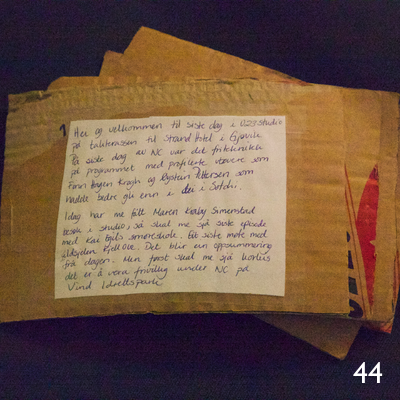 Hei og velkommen til siste dag i O227 studio
på takterassen til Strand Hotel i Gjøvik
På siste dag av NC var det friteknikk
på programmet med profilerte utøvere som
Finn Hågen Krogh og Øystein Pettersen som
hadde bedre gli enn i dei i Sotchi.
Idag har me fått Maren Kjølby Simenstad
besøk i studio, så skal me sjå siste episode
med Kai Egils smøreskole. Eit siste møte med
ildsjelen Kjell Ove. Det blir ein oppsummering
frå dagen. Men først skal me sjå korleis
det er å vera frivillig under NC på
Vind Idrettspark
44